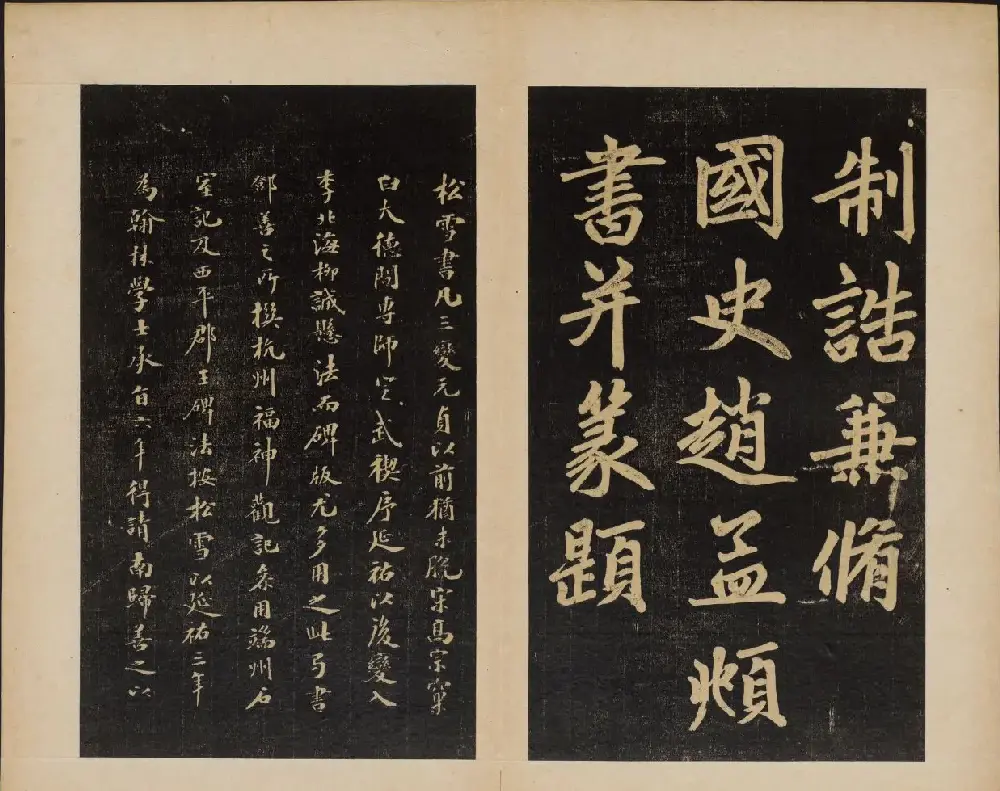 制誥兼脩
國史趙孟頫
書并篆題
松雪書凡三變元貞以前猶未脫宋高宗窠
臼大德間專師定武禊序延祐以後變入
李北海柳誠懸法而碑版尤多用之此為書
鄧善之所撰杭州福神觀記兼用端州石
室記及西平郡王碑法按松雪以延祐三年
為翰林學士承旨六年得請南歸善之以